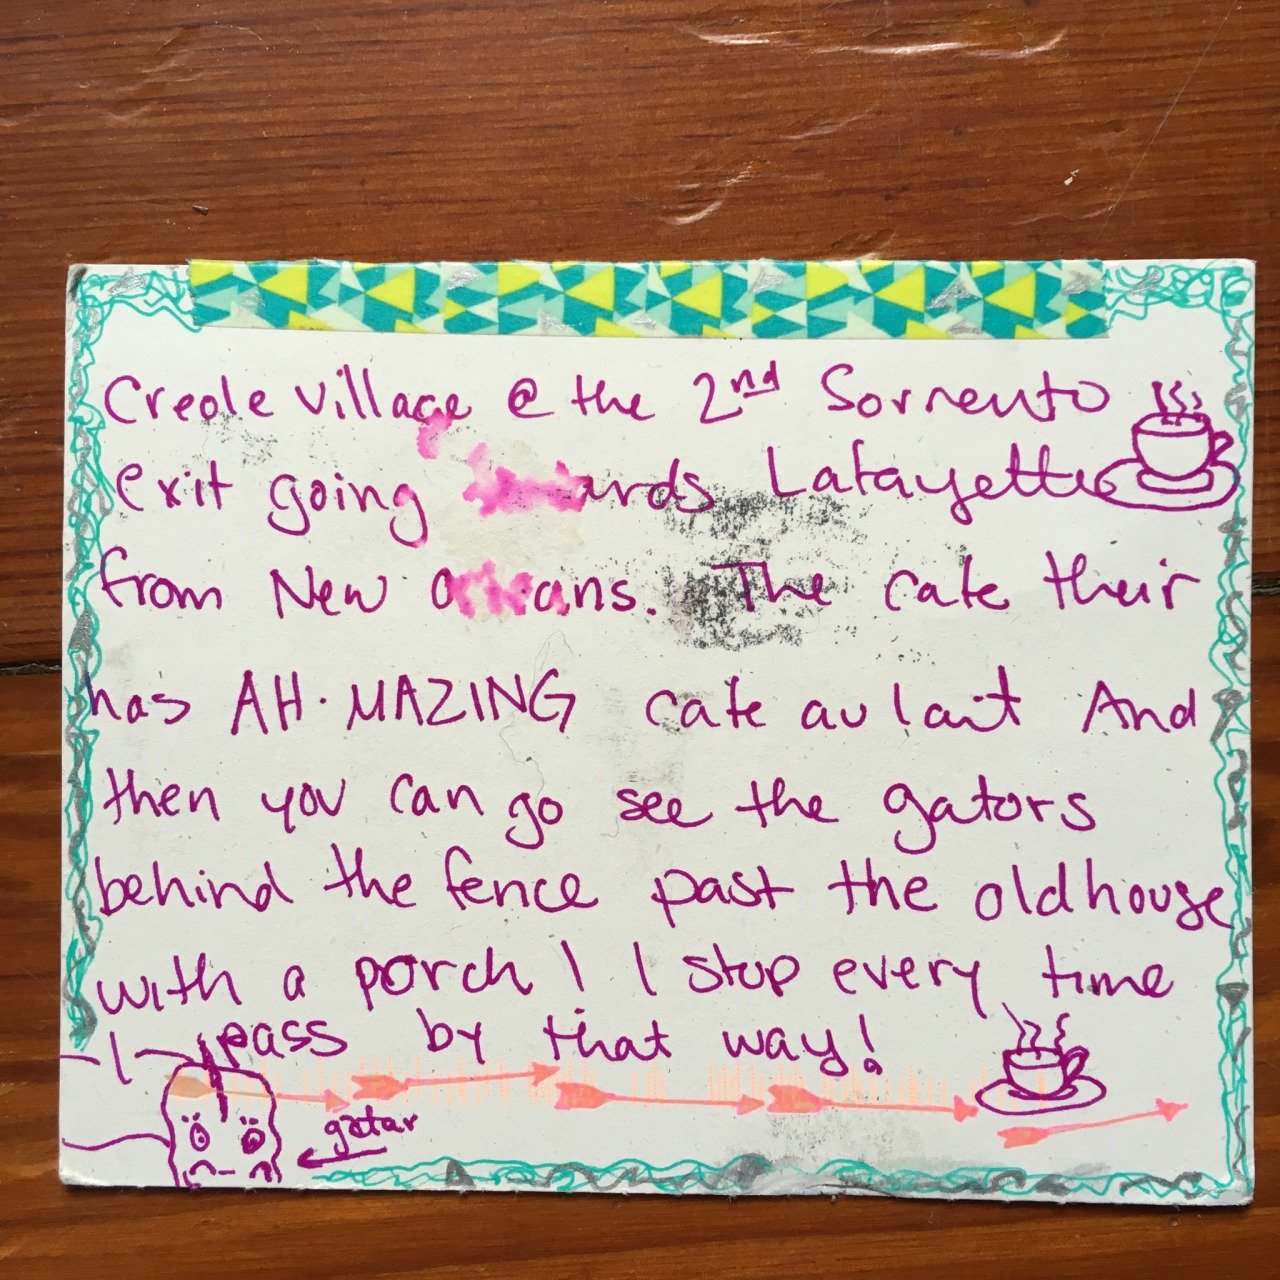 Creole Village @ the 2nd Sorrento
exit going Lafayette
from New Orleans. The cafe their
has AH·MAZING cafe au lait And
then you can go see the gators
behind the fence past the old house
with a porch! I stop every time
I pass by that way!
gator